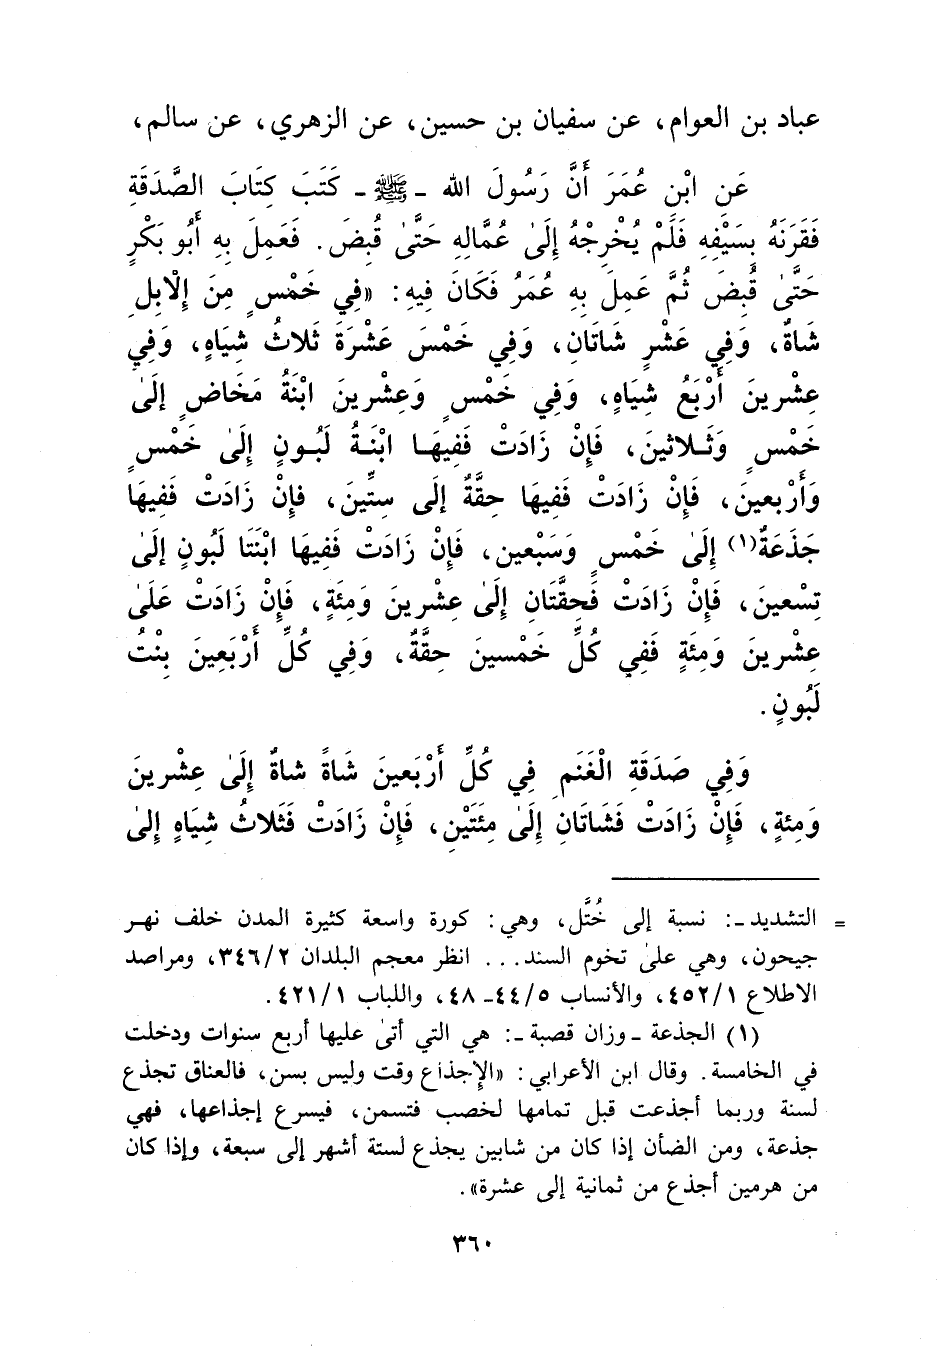 عباد بن العوام، عن سفيان بن حسين، عن الزهري، عن سالم،
عَنِ ابْنِ عُمَرَ أَنَّ رَسُولَ الله ـ ﷺ ـ كَتَبَ كِتَابَ الصَّدَقَةِ
فَقَرَنَهُ بِسَيْفِهِ فَلَمْ يُخْرِجْهُ إِلَىٰ عُمَّالِهِ حَتَّىٰ قُبِضَ. فَعَمِلَ بِهِ أَبُو بَكْرٍ
حَتَّىٰ قُبِضَ ثُمَّ عَمِلَ بِهِ عُمَرُ فَكَانَ فِيهِ: «فِي خَمْسٍ مِنَ الْإِبِلِ
شَاةٌ، وَفِي عَشْرٍ شَاتَانِ، وَفِي خَمْسَ عَشْرَةَ ثَلاثُ شِيَاهٍ، وَفِي
عِشْرِينَ أَرْبَعُ شِيَاهٍ، وَفِي خَمْسٍ وَعِشْرِينَ ابْنَةُ مَخَاضٍ إِلَىٰ
خَمْسٍ وَثَـلاثِينَ، فَإِنْ زَادَتْ فَفِيهَـا ابْنَـةُ لَبُـونٍ إِلَىٰ خَمْسٍ
وَأَرْبِعينَ، فَإِنْ زَادَتْ فَفِيهَا حِقَّةٌ إِلَى سِتِّينَ، فإِنْ زَادَتْ فَفِيهَا
جَذَعَةٌ(١) إِلَىٰ خَمْسٍ وَسَبْعِين، فَإِنْ زَادَتْ فَفِيهَا ابْنَتَا لَبُونٍ إِلَىٰ
تِسْعِينَ، فَإِنْ زَادَتْ فَحِقَّتَانِ إِلَىٰ عِشْرِينَ وَمِئَةٍ، فَإِنْ زَادَتْ عَلَىٰ
عِشْرِينَ وَمِئَةٍ فَفِي كُلِّ خَمْسِينَ حِقَّةٌ، وَفِي كُلِّ أَرْبَعِينَ بِنْتُ
لَبُونٍ.
وَفِي صَدَقَةِ الْغَنَمِ فِي كُلِّ أَرْبَعِينَ شَاةً شاةٌ إِلَىٰ عِشْرِينَ
وَمِئةٍ، فَإِنْ زَادَتْ فَشَاتَانِ إِلَىٰ مِئَتَيْنِ، فَإِنْ زَادَتْ فَثَلاثُ شِيَاهٍ إِلىٰ
= التشديد ـ: نسبة إلى خُتَّل، وهي: كورة واسعة كثيرة المدن خلف نهـر
جيحون، وهي علىٰ تخوم السند... انظر معجم البلدان ٣٤٦/٢، ومراصد
الاطلاع ٤٥٢/١، والأنساب ٤٤/٥ـ ٤٨، واللباب ٤٢١/١.
(١) الجذعة ـ وزان قصبة ـ: هي التي أتىٰ عليها أربع سنوات ودخلت
في الخامسة. وقال ابن الأعرابي: «الإِجذاع وقت وليس بسن، فالعناق تجذع
لسنة وربما أجذعت قبل تمامها لخصب فتسمن، فيسرع إجذاعها، فهي
جذعة، ومن الضأن إذا كان من شابين يجذع لستة أشهر إلى سبعة، وإذا كان
من هرمين أجذع من ثمانية إلى عشرة».
٣٦٠